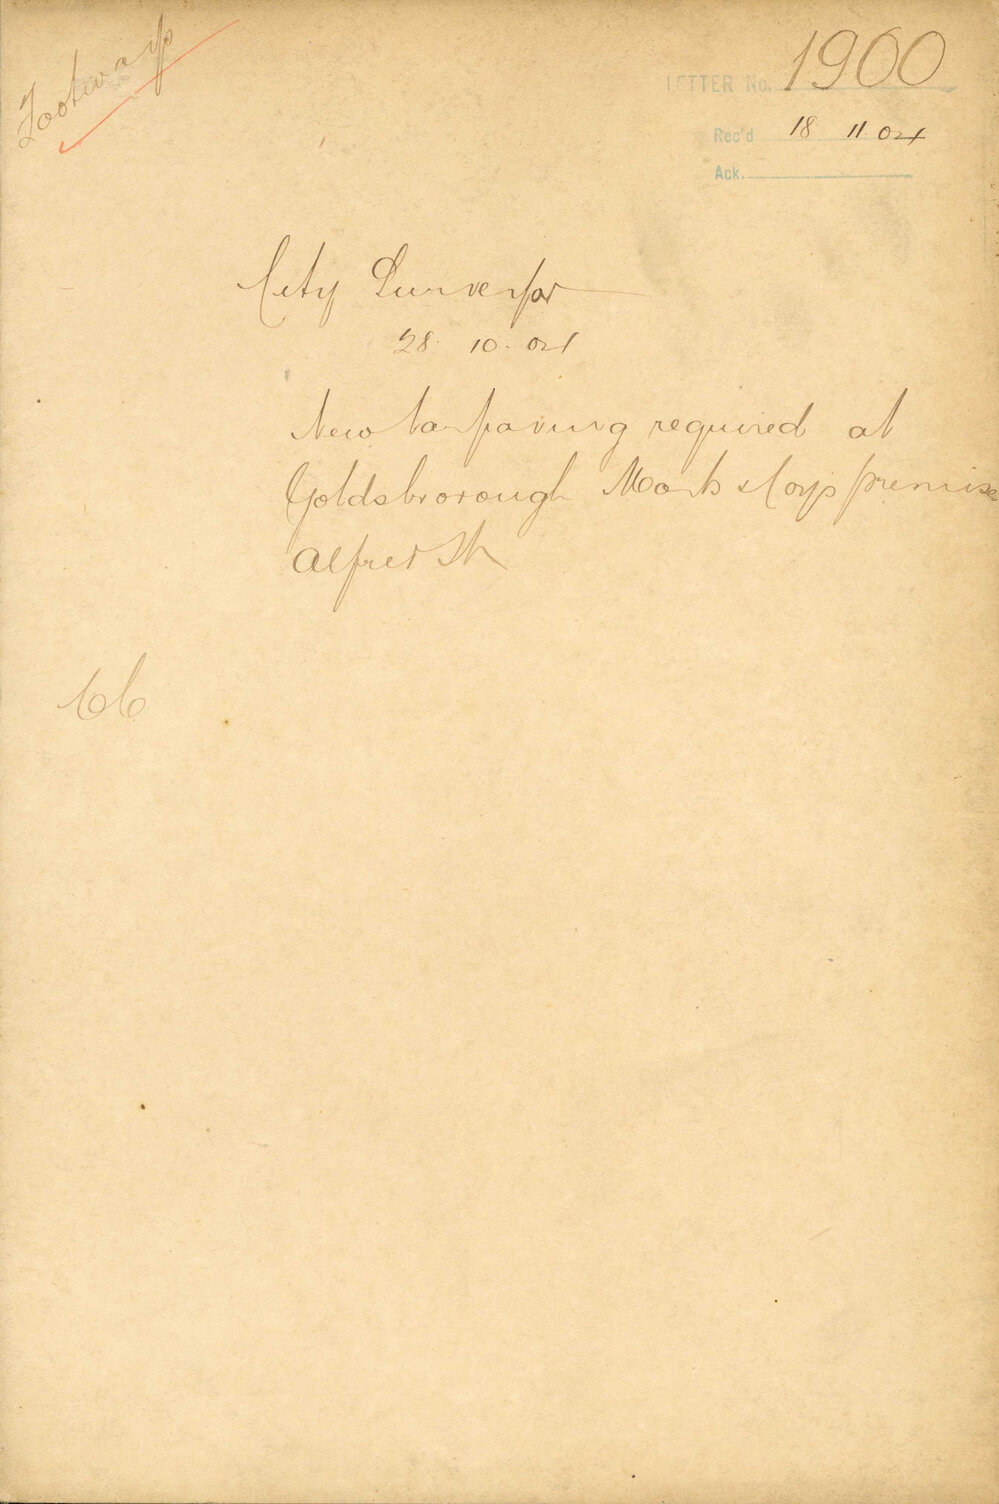 Footways
LETTER No. 1900
Rec'd 18 11 04
Ack.
City Surveyor
28. 10. 04
New tarpaving required at
Goldsborough Mort & Coys premises
Alfred St